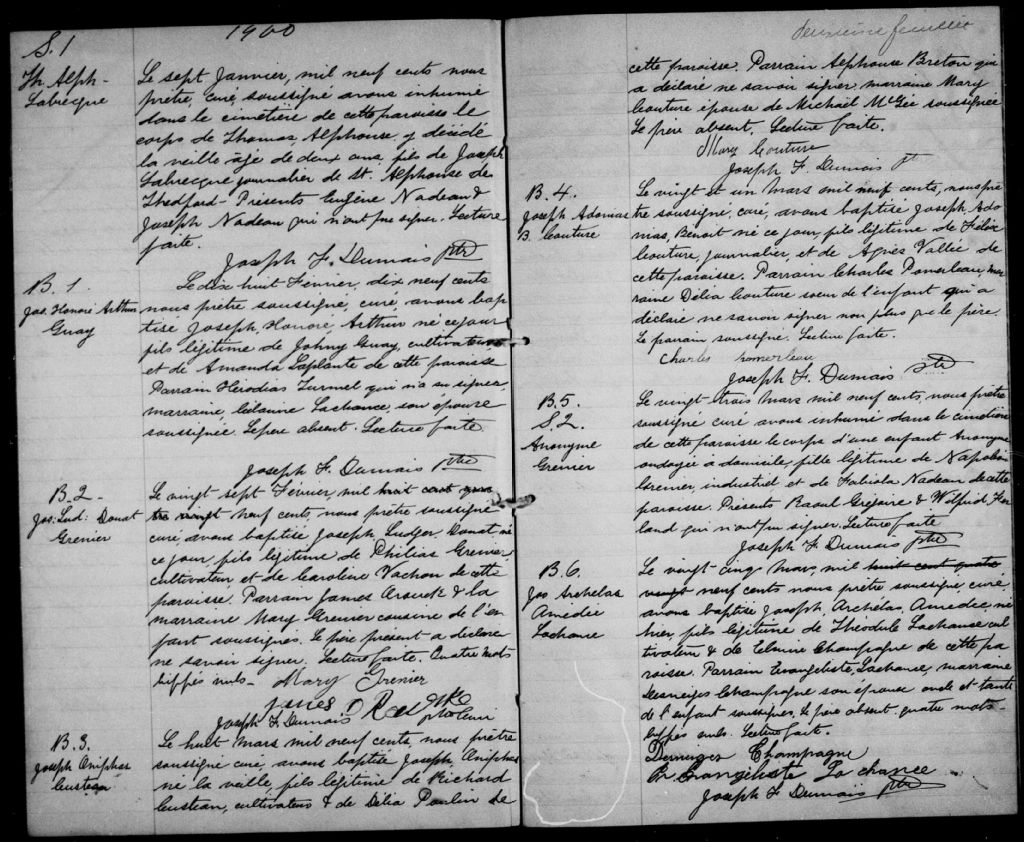 1900
S. 1
Th. Alph-
Labrecque
Le sept Janvier, mil neuf cents nous
prêtre, curé, soussigné avons inhumé
dans le cimetière de cette paroisse le
corps de Thomas, Alphonse, y décédé
la veille âgé de deux ans, fils de Joseph
Labrecque journalier de St. Alphonse de
Thedford. Présents Eugène Nadeau &
Joseph Nadeau qui n'ont pu signer. Lecture
faite.
Joseph F. Dumais ptr
B. 1.
Jos. Honoré Arthur
Guay
Le dix huit Février, dix neuf cents
nous prêtre soussigné, curé, avons bap
tisé Joseph, Honoré, Arthur né ce jour
fils légitime de Johny Guay, cultivateur
et de Amanda Laplante de cette paroisse
Parrain Hérodias Turmel qui n'a su signer,
marraine, Lachance, son épouse
soussignée. Le père absent. Lecture faite.
Joseph F. Dumais ptre
B. 2 -
Jos. Lud: Donat
Grenier
Le vingt sept Février, mil huit cent qua
tre vingt neuf cents, nous prêtre soussigné
curé, avons baptisé Joseph Ludger Donat né
ce jour, fils légitime de Philias Grenier
cultivateur et de Caroline Vachon de cette
paroisse. Parrain James & la
marraine Mary Grenier cousine de l'en
fant soussignés. Le père présent a déclaré
ne savoir signer. Lecture faite. Quatre mots
biffés nuls - Mary Grenier
James
Joseph F. Dumais
B. 3.
Joseph Oniphas
Custeau
Le huit Mars mil neuf cents, nous prêtre
soussigné curé, avons baptisé Joseph Oniphas
né la veille, fils légitime de Richard
Custeau, cultivateur & de Délia Poulin de
deuxième feuillet
cette paroisse. Parrain Alphonse Breton qui
a déclaré ne savoir signer, marraine Mary
Couture épouse de Michaël McGee soussignée
Le père absent. Lecture faite.
Mary Couture
Joseph F. Dumais Ptr
B. 4.
Joseph Adonias
B. Couture
Le vingt et un Mars mil neuf cents, nous prê
tre soussigné, curé, avons baptisé Joseph, Ado
nias, Benoit né ce jour, fils légitime de Félix
Couture, journalier, et de Agnès Vallée de
cette paroisse. Parrain Charles Pomerleau, mar
raine Délia Couture soeur de l'enfant qui a
déclaré ne savoir signer non plus que le père.
Le parrain soussigné. Lecture faite.
Charles Pomerleau
Joseph F. Dumais ptr
B. 5.
S. 2.
Anonyme
Grenier
Le vingt trois Mars mil neuf cents, nous prêtre
soussigné curé avons inhumé dans le cimetière
de cette paroisse le corps d'une enfant Anonyme
ondoyée à domicile, fille légitime de Napoléon
Grenier, industriel et de Fabiola Nadeau de cette
paroisse. Présents Raoul Grégoire & Wilfrid Fer
land qui n'ont pu signer. Lecture faite
Joseph F. Dumais ptre
B. 6.
Jos Archelas
Amédée
Lachance
Le vingt cinq Mars, mil huit cent quatre
vingt neuf cents nous prêtre soussigné, curé,
avons baptisé Joseph, Archélas, Amédée né
hier, fils légitime de Théodule Lachance cul
tivateur & de Elmire Champagne de cette pa
roisse. Parrain Evangéliste, Lachance, marraine
Desneiges Champagne son épouse oncle et tante
de l'enfant soussignés, le père absent quatre mots
biffés nuls. Lecture faite.
Derneiges Champagne
Evangeliste La chance
Joseph F. Dumais ptr